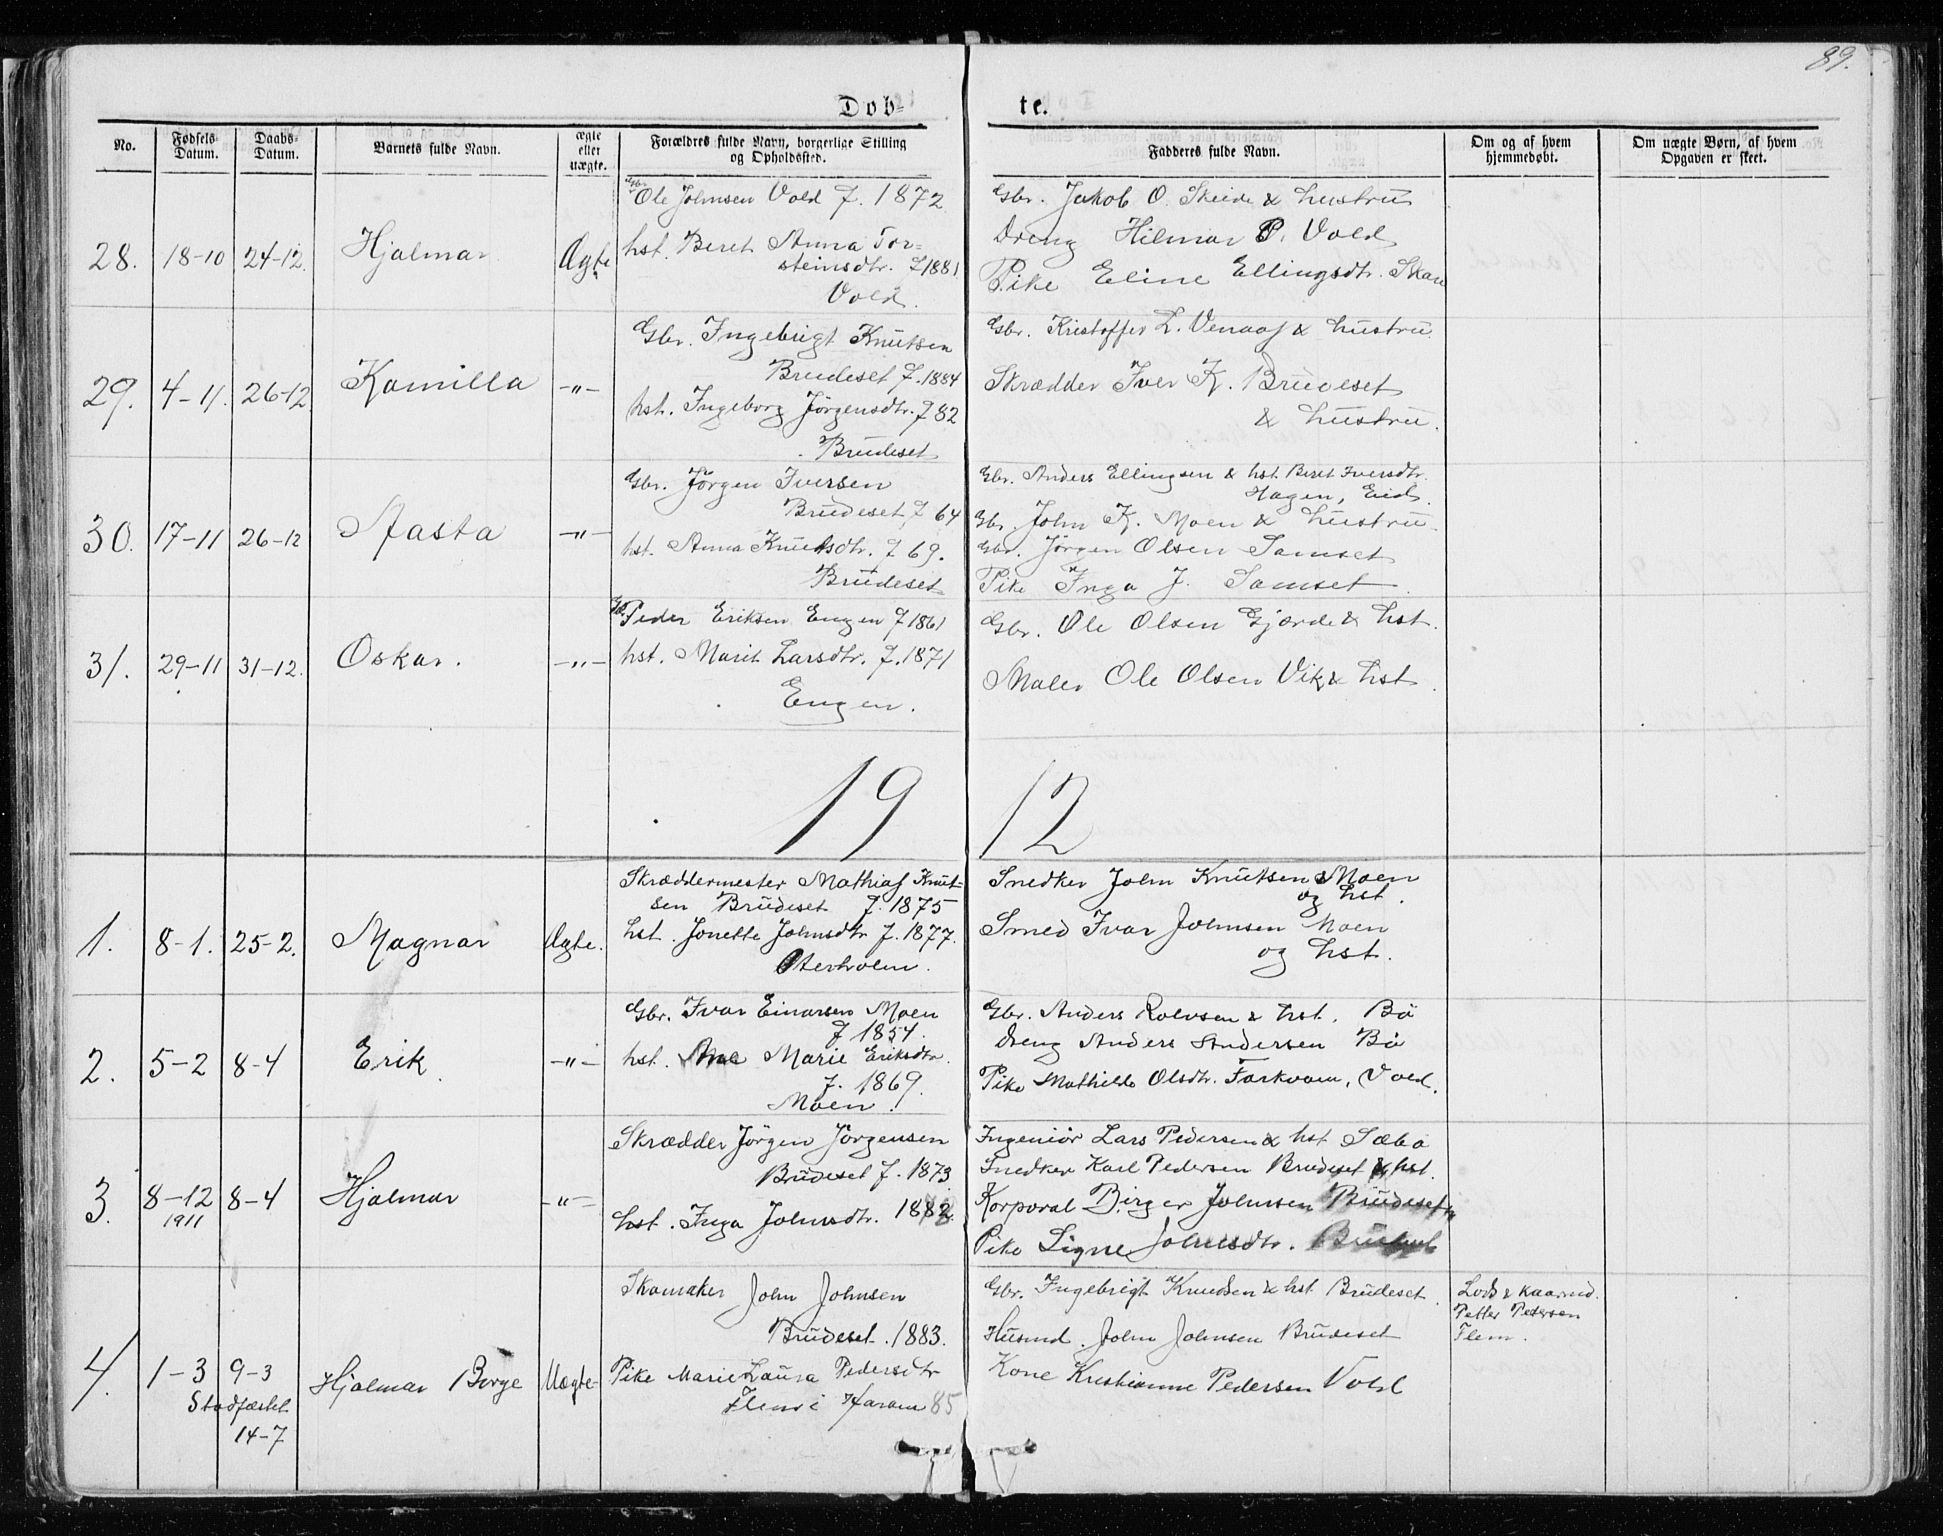 89.
Døb-
te.
No.
Fødsels-
Datum.
Daabs-
Datum.
Barnets fulde Navn.
ægte
eller
uægte.
Forældres fulde Navn, borgerlige Stilling
og Opholdssted.
Fadderes fulde Navn.
Om og af hvem
hjemmedøbt.
Om uægte Børn, af hvem
Opgaven er skeet.
28.
18-10
24-12.
Hjalmar
Ægte
Gbr. Ole Johnsen Vold f. 1872
hst. Beret Anna Tor-
steinsdtr. f 1881
Vold.
Gbr. Jakob O. Skeide & hustru
Dreng Hilmar P. Vold
Pike Eline Ellingsdtr. Skar
29.
4-11.
26-12.
Kamilla
-"-
Gbr. Ingebrigt Knutsen
Brudeset f. 1884
hst. Ingeborg Jörgensdtr. f 82
Brudeset
Gbr. Kristoffer L. Venaas & hustru.
Skrædder Iver K. Brudeset
& hustru.
30.
17-11
26-12
Aasta
-"-
Gbr. Jörgen Iversen
Brudeset f 64
hst. Anna Knutsdtr. f 69.
Brudeset
Gbr. Anders Ellingsen & hst. Beret Iversdtr.
Hagen, Eid.
Gbr. John K. Moen & hustru
Gbr. Jörgen Olsen Samset
Pike Inga J. Samset
31.
29-11
31-12.
Oskar.
-"-
Gbr. Peder Eriksen Engen f 1861
hst. Marit Larsdtr. f. 1871
Engen.
Gbr. Ole Olsen Gjærde & hst.
Maler Ole Olsen Vik & hst.
19
12
1.
8-1.
25-2.
Magnar
Ægte.
Skræddermester Mathias Knut-
sen Brudeset f. 1875
hst. Jonette Johnsdtr f. 1877.
Oterholm.
Snedker John Knutsen Moen
og hst.
Smed Ivar Johnsen Moen
og hst.
2.
5-2
8-4
Erik.
-"-
Gbr. Ivar Einarsen Moen
f 1854.
hst. Marie Eriksdtr.
f. 1869.
Moen.
Gbr. Anders Rolvsen & hst. Bö
Dreng Anders Andersen Bö
Pike Mathilde Olsdtr. Farkvam, Vold.
3.
8-12
1911
8-4
Hjalmar
-"-
Skrædder Jörgen Jörgensen
Brudeset f. 1873.
hst. Inga Johnsdtr. 1882
Ingeniör Lars Pedersen & hst Sæbö
Snedker Karl Pedersen Brudeset & hst.
Korporal Birger Johnsen Brudeset
Pike Signe Johnsdtr.
4.
1-3
9-3
Stadfæstet
14-7
Hjalmar Borge
Uægte
Skomaker John Johnsen
Brudeset. 1883.
Pike Marie Laura Pedersdtr
Flem i Haram 85
Gbr. Ingebrigt Knudsen & hst Brudeset
Husmd. John Johnsen Brudeset
Kone Kristianne Pedersen Vold
Lods & kaarmd.
Petter Pedersen
Flem.